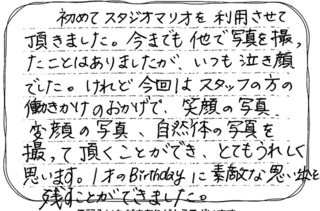 初めてスタジオマリオを利用させて
頂きました。今までも他で写真を撮っ
たことはありましたが、いつも泣き顔
でした。けれど今回はスタッフの方の
働きかけのおかげで、笑顔の写真、
変顔の写真、自然体の写真を
撮って頂くことができ、とてもうれしく
思います。1才のBirthdayに素敵な思い出を
残すことができました。